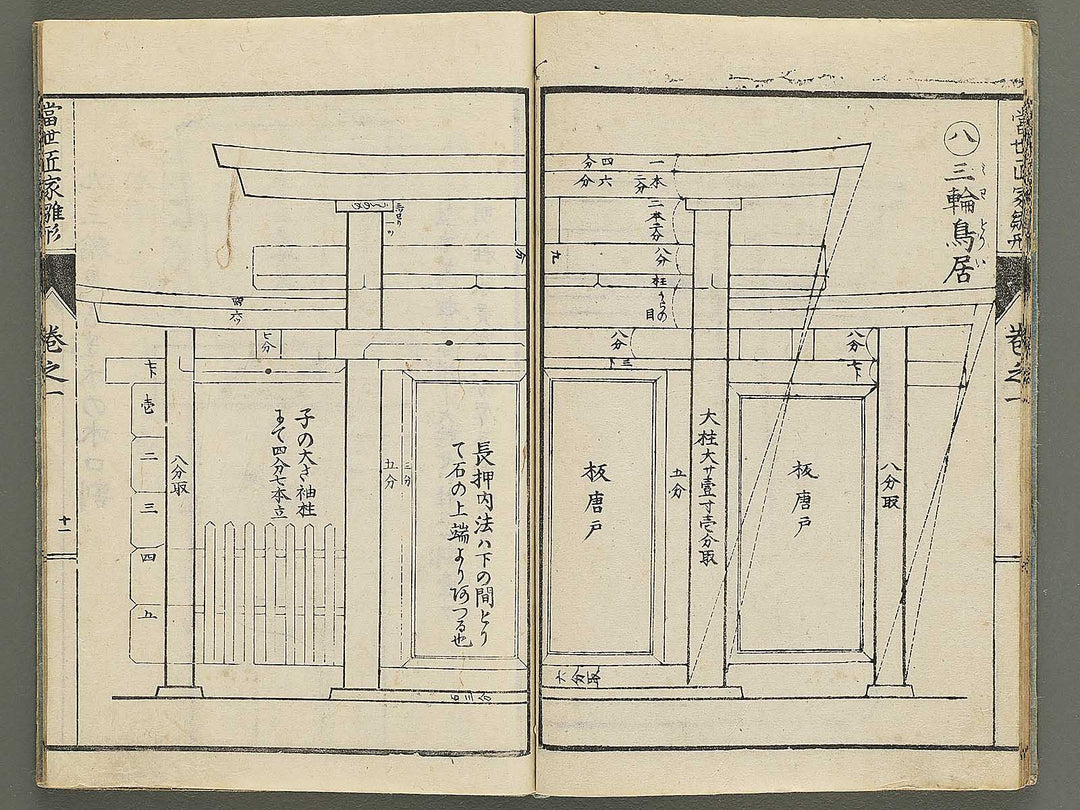 八
三輪鳥居
みわとりい
一本
四分
六分
二分
二本三分
八分
柱
目
八分
八分
大柱大サ壹寸壱分取
八分取
五分
板唐戸
板唐戸
當世匠家雛形
卷之一
四
六分
七分
壱
二
三
四
五
八分取
子の大き袖柱
にて四分七本立
五分
三分
長押内法ハ下の間とり
て石の上端より
つる也
當世匠家雛形
卷之一
十一